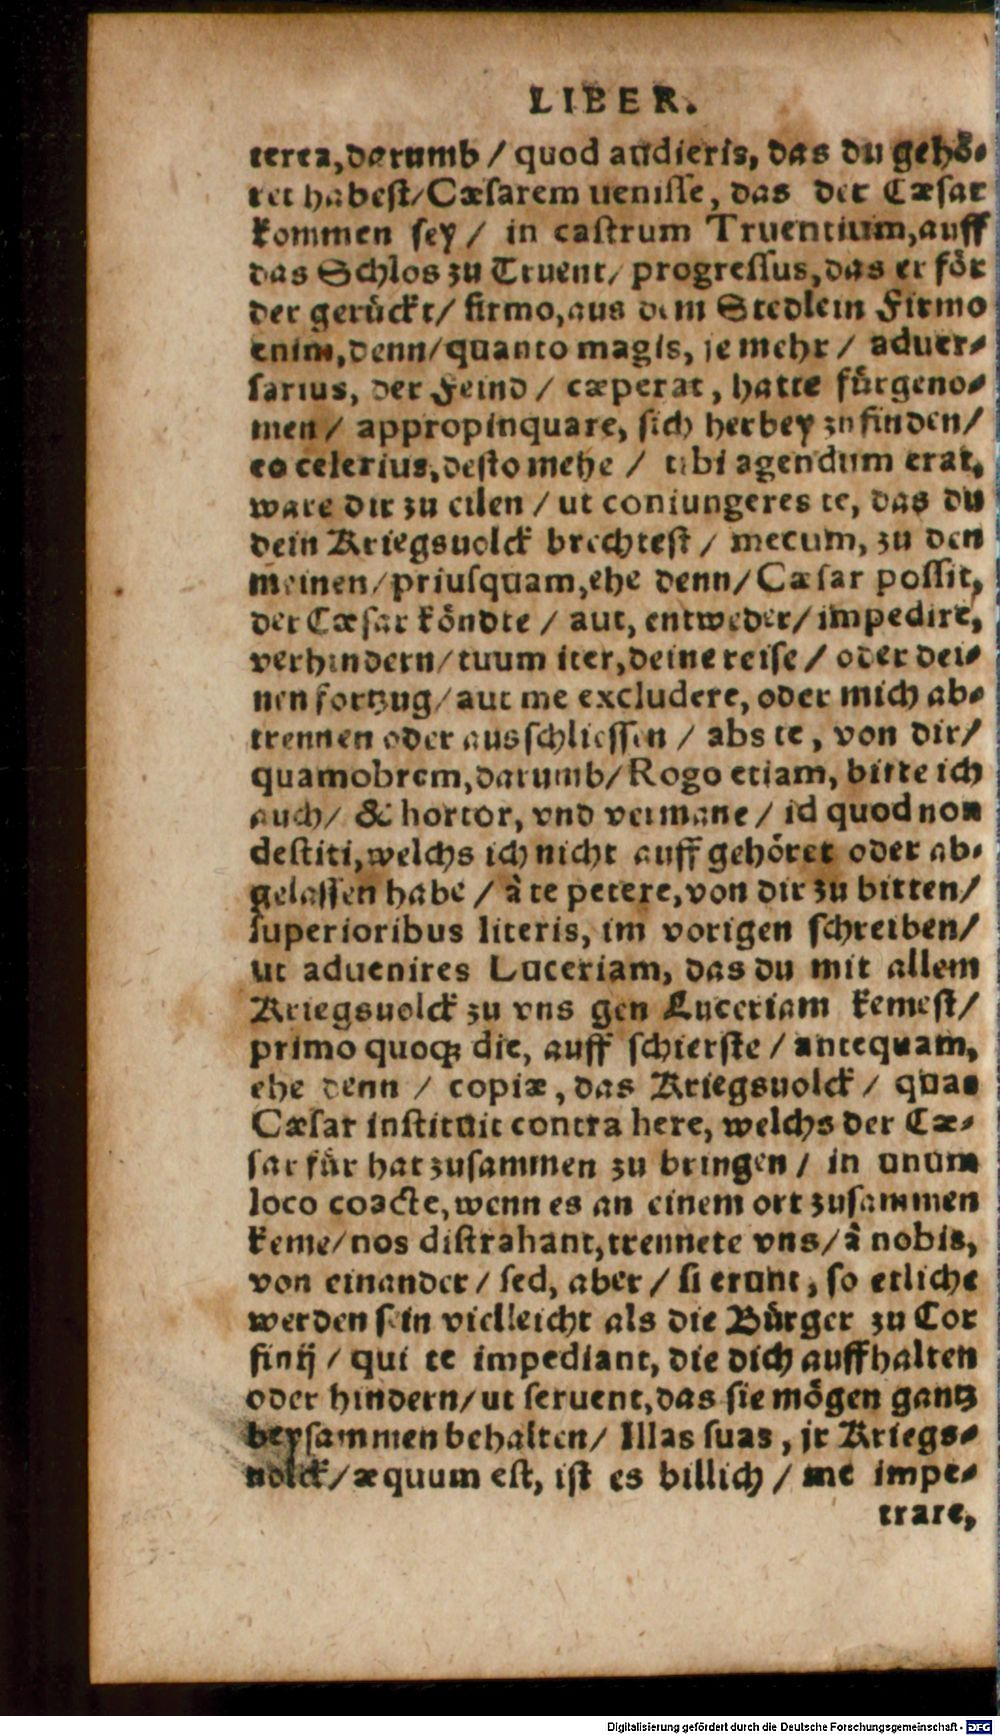 LIBER.
terea, darumb / quod audieris, das du gehö⸗
ret habest/ Cæsarem uenisse, das der Cæsar
kommen sey / in castrum Truentium, auff
das Schlos zu Truent/ progressus, das er för
der gerückt/ firmo, aus dem Stedlein Firmo
enim, denn/ quanto magis, je mehr / aduer⸗
sarius, der Feind / cæperat, hatte fürgeno⸗
men / appropinquare, sich herbey zu finden/
eo celerius, desto mehe / tibi agendum erat,
ware dir zu eilen / ut coniungeres te, das du
dein Kriegsuolck brechtest / mecum, zu den
meinen/ priusquam, ehe denn/ Cæsar possit,
der Cæsar köndte / aut, entweder/ impedire,
verhindern/ tuum iter, deine reise / oder dei⸗
nen fortzug/ aut me excludere, oder mich ab⸗
trennen oder ausschliessen / abs te, von dir/
quamobrem, darumb/ Rogo etiam, bitte ich
auch/ & hortor, vnd vermane / id quod non
destiti, welchs ich nicht auff gehöret oder ab⸗
gelassen habe / à te petere, von dir zu bitten/
superioribus literis, im vorigen schreiben/
ut aduenires Luceriam, das du mit allem
Kriegsuolck zu vns gen Luceriam kemest/
primo quoqꝫ die, auff schierste / antequam,
ehe denn / copiæ, das Kriegsuolck / quas
Cæsar instituit contra here, welchs der Cæ⸗
sar für hat zusammen zu bringen / in unum
loco coacte, wenn es an einem ort zusammen
keme/ nos distrahant, trennete vns/ à nobis,
von einander / sed, aber / si erunt, so etliche
werden sein vielleicht als die Bürger zu Cor
finij / qui te impediant, die dich auffhalten
oder hindern/ ut seruent, das sie mögen gantz
beysammen behalten/ Illas suas, jr Kriegs⸗
uolck/ æquum est, ist es billich / me impe⸗
trare,
Digitalisierung gefördert durch die Deutsche Forschungsgemeinschaft - DFG